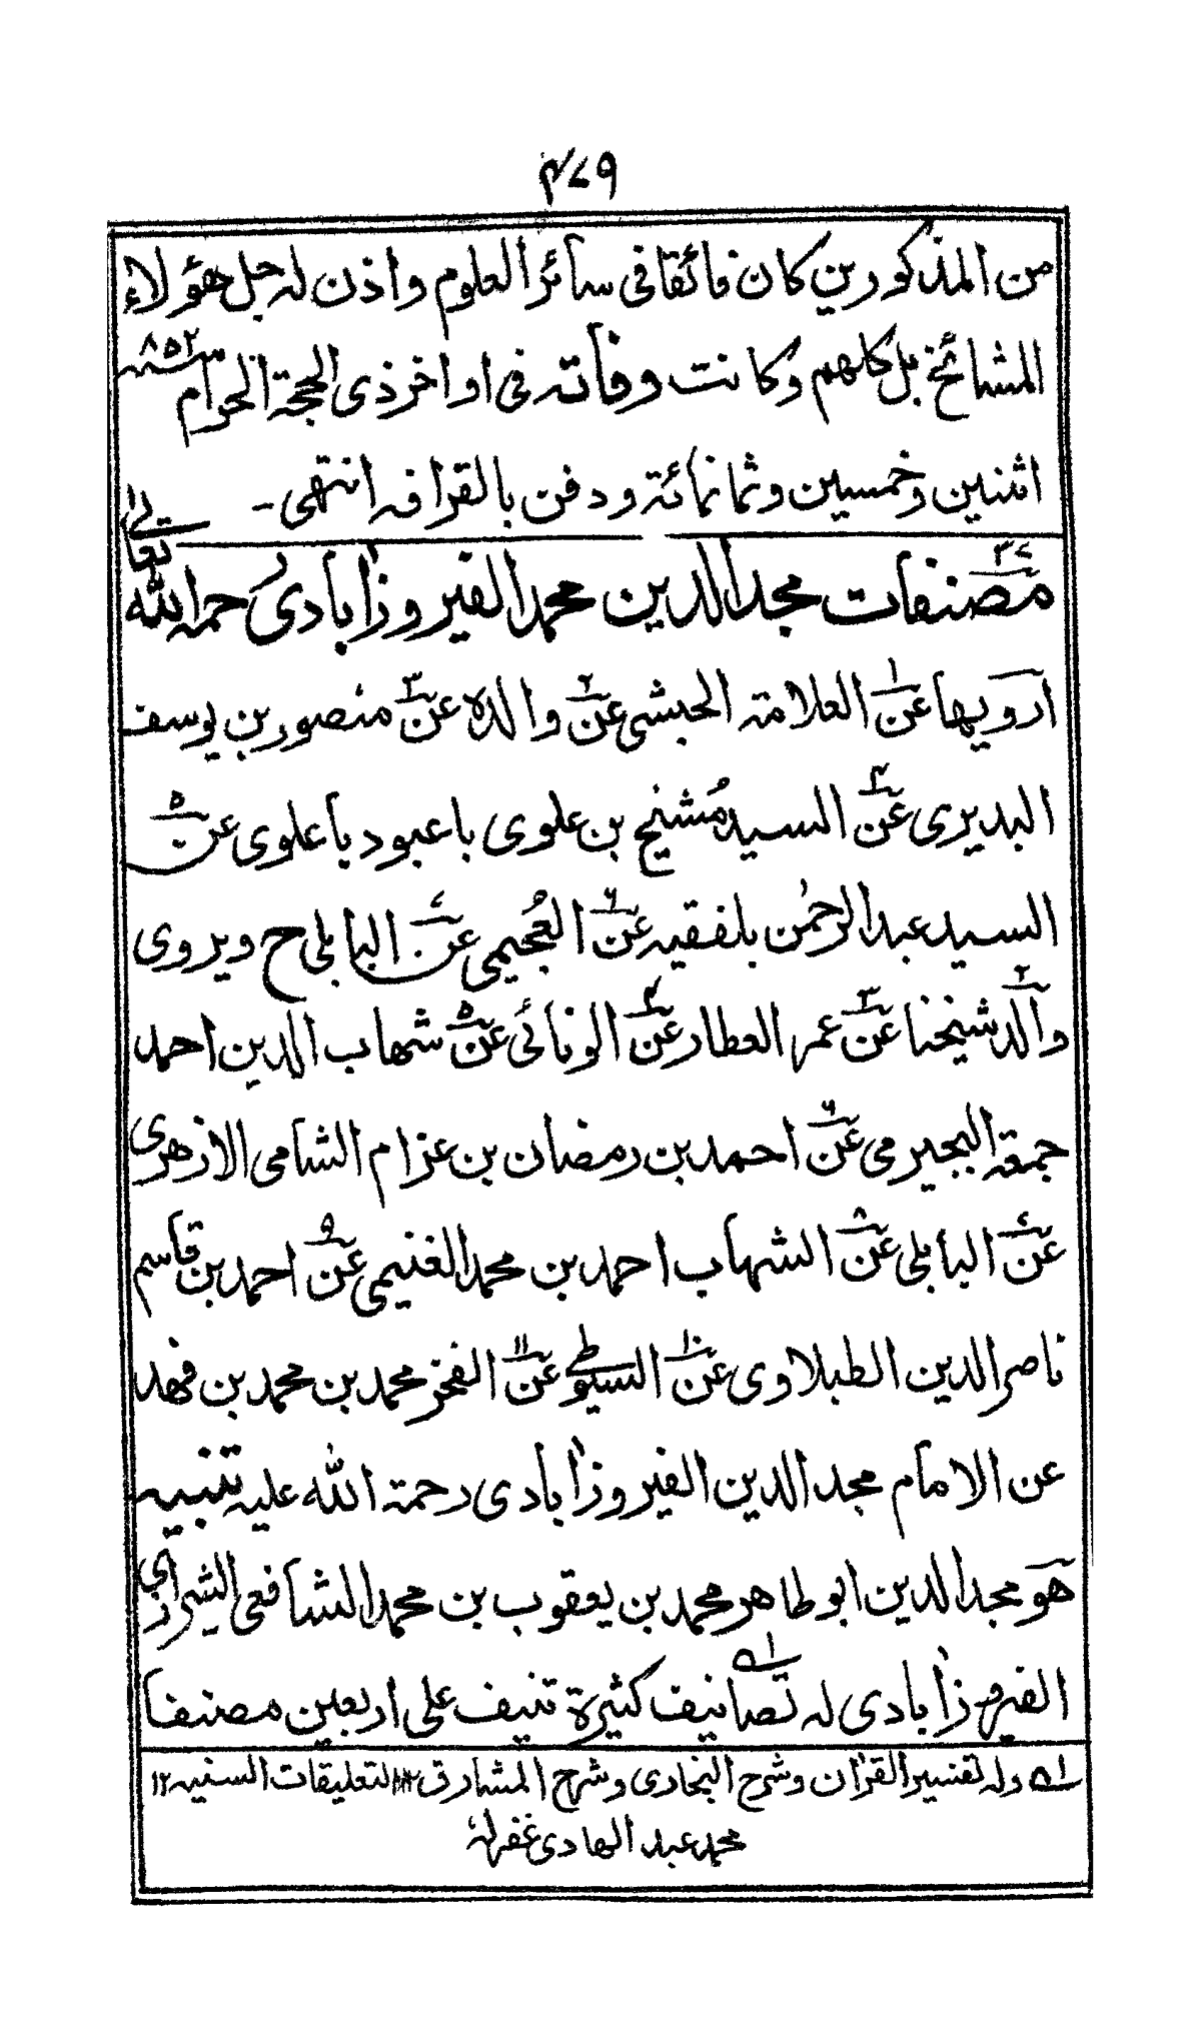 ۴۷۹
من المذكورين كان فائقا فی سائر العلوم واذن له جل هؤلاء
المشائخ بل كلهم وكانت وفاته فی اواخر ذی الحجة الحرام سنه ۸۵۲
اثنين وخمسين وثمانمائة ودفن بالقرافه انتهی -
۳۷ مصنفات مجد الدين محمد الفيروزاٰبادی رحمه الله تعالیٰ
ارويها عن۱ العلامة الحبشی عن۲ والده عن۳ منصور بن يوسف
البديری عن۴ السيد مُشيخ بن علوی باعبود باعلوی عن۵
السيد عبد الرحمٰن بلفقيه عن۶ العُجيمی عن۷ البابلی ح ويروی
والد۲ شيخنا عن۳ عمر العطار عن۴ الونائی عن۵ شهاب الدين احمد
جمعة البجيرمی عن۶ احمد بن رمضان بن عزام الشامی الازهری
عن۷ البابلی عن۸ الشهاب احمد بن محمد الغنيمی عن۹ احمد بن قاسم
ناصر الدين الطبلاوی عن۱۰ السيوطی عن۱۱ الفخر محمد بن محمد بن فهد
عن الامام مجد الدين الفيروزاٰبادی رحمة الله عليه تنبيه
هو مجد الدين ابو طاهر محمد بن يعقوب بن محمد الشافعی الشيرازی
الفيروزاٰبادی له تصانيف۱ه كثيرة تنيف علی اربعين مصنفا
۱ه وله تفسير القراٰن وشرح البخاری وشرح المشارق ۱۲ التعليقات السنيه ۱۲
محمد عبد الهادی غفرلهٗ